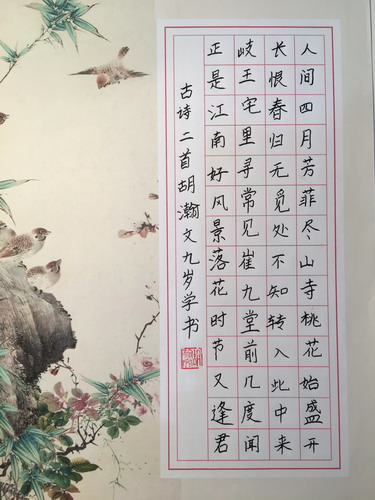 人间四月芳菲尽山寺桃花始盛开
长恨春归无觅处不知转入此中来
岐王宅里寻常见崔九堂前几度闻
正是江南好风景落花时节又逢君
古诗二首胡瀚文九岁学书